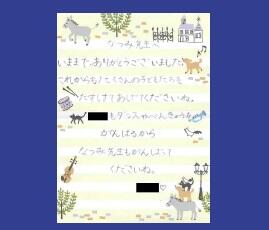 なつみ先生へ
いままでありがとうございました。
これからもたくさんの子どもたちを
たすけてあげてくださいね。
もダンスやべんきょうを
がんばるから
なつみ先生もがんばって
くださいね。
♡